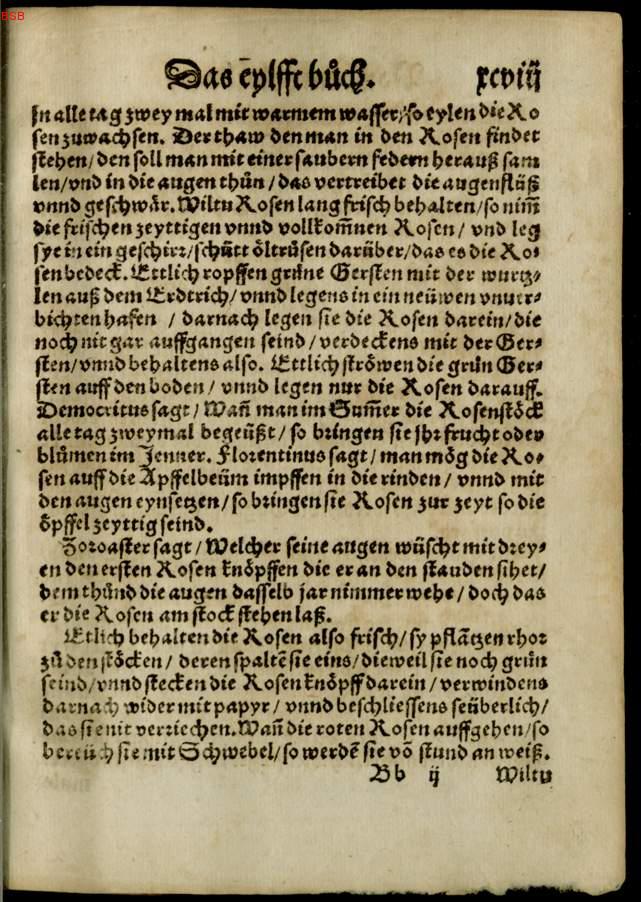 BSB
Das eylfft bůch. xcviij
jn alle tag zwey mal mit warmem wasser/ so eylen die Ro
sen zuwachsen. Der thaw den man in den Rosen findet
stehen/ den soll man mit einer saubern federn herauß sam
len/ vnd in die augen thůn / das vertreibet die augenflüß
vnnd geschwär. Wiltu Rosen lang frisch behalten/ so nim̃
die frischen zeyttigen vnnd vollkom̃nen Rosen/ vnd leg
sye in ein geschirr/ schütt öltrůsen darüber/ das es die Ro⸗
sen bedeck. Ettlich ropffen grüne Gersten mit der wurtz⸗
len auß dem Erdtrich/ vnnd legens in ein neüwen vnuer⸗
bichten hafen / darnach legen sie die Rosen darein/ die
noch nit gar auffgangen seind/ verdeckens mit der Ger⸗
sten/ vnnd behaltens also. Ettlich ströwen die grün Ger⸗
sten auff den boden/ vnnd legen nur die Rosen darauff.
Democritus sagt/ Wañ man im Sum̃er die Rosenstöck
alle tag zweymal begeüßt/ so bringen sie jhr frucht oder
blůmen im Jenner. Florentinus sagt/ man mög die Ro⸗
sen auff die Äpffelbeüm impffen in die rinden/ vnnd mit
den augen eynsetzen/ so bringen sie Rosen zur zeyt so die
öpffel zeyttig seind.
Zoroaster sagt/ Welcher seine augen wüscht mit drey⸗
en den ersten Rosen knöpffen die er an den stauden sihet/
dem thůnd die augen dasselb jar nimmer wehe/ doch das
er die Rosen am stock stehen laß.
Etlich behalten die Rosen also frisch/ sy pflãtzen rhor
zů den stöcken/ deren spaltẽ sie eins/ dieweil sie noch grün
seind/ vnnd stecken die Rosen knöpff darein/ verwindens
darnach wider mit papyr/ vnnd beschliessens seüberlich/
das sie nit verriechen. Wañ die roten Rosen auffgehen/ so
bereüch sie mit Schwebel/ so werdẽ sie võ stund an weiß.
Bb ij Wiltu